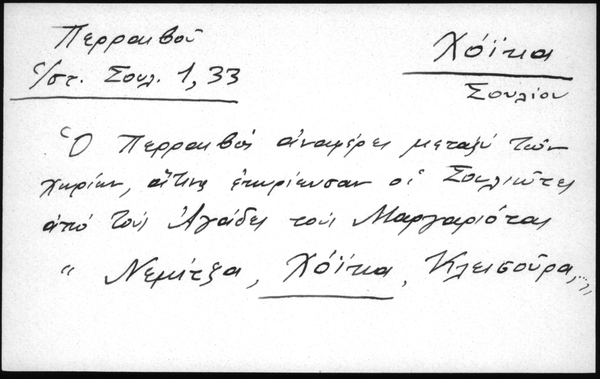 Περραιβοῦ
Ἱστ. Σουλ. 1, 33
Χόϊκα
Σουλίου
Ὁ Περραιβός ἀναφέρει μεταξύ τῶν
χωρίων, ἅτινα ἐκυρίευσαν οἱ Σουλιῶτες
ἀπό τούς Ἀγάδες τούς Μαργαριότας
" Νεμίτζα, Χόϊκα, Κλεισοῦρα,...,